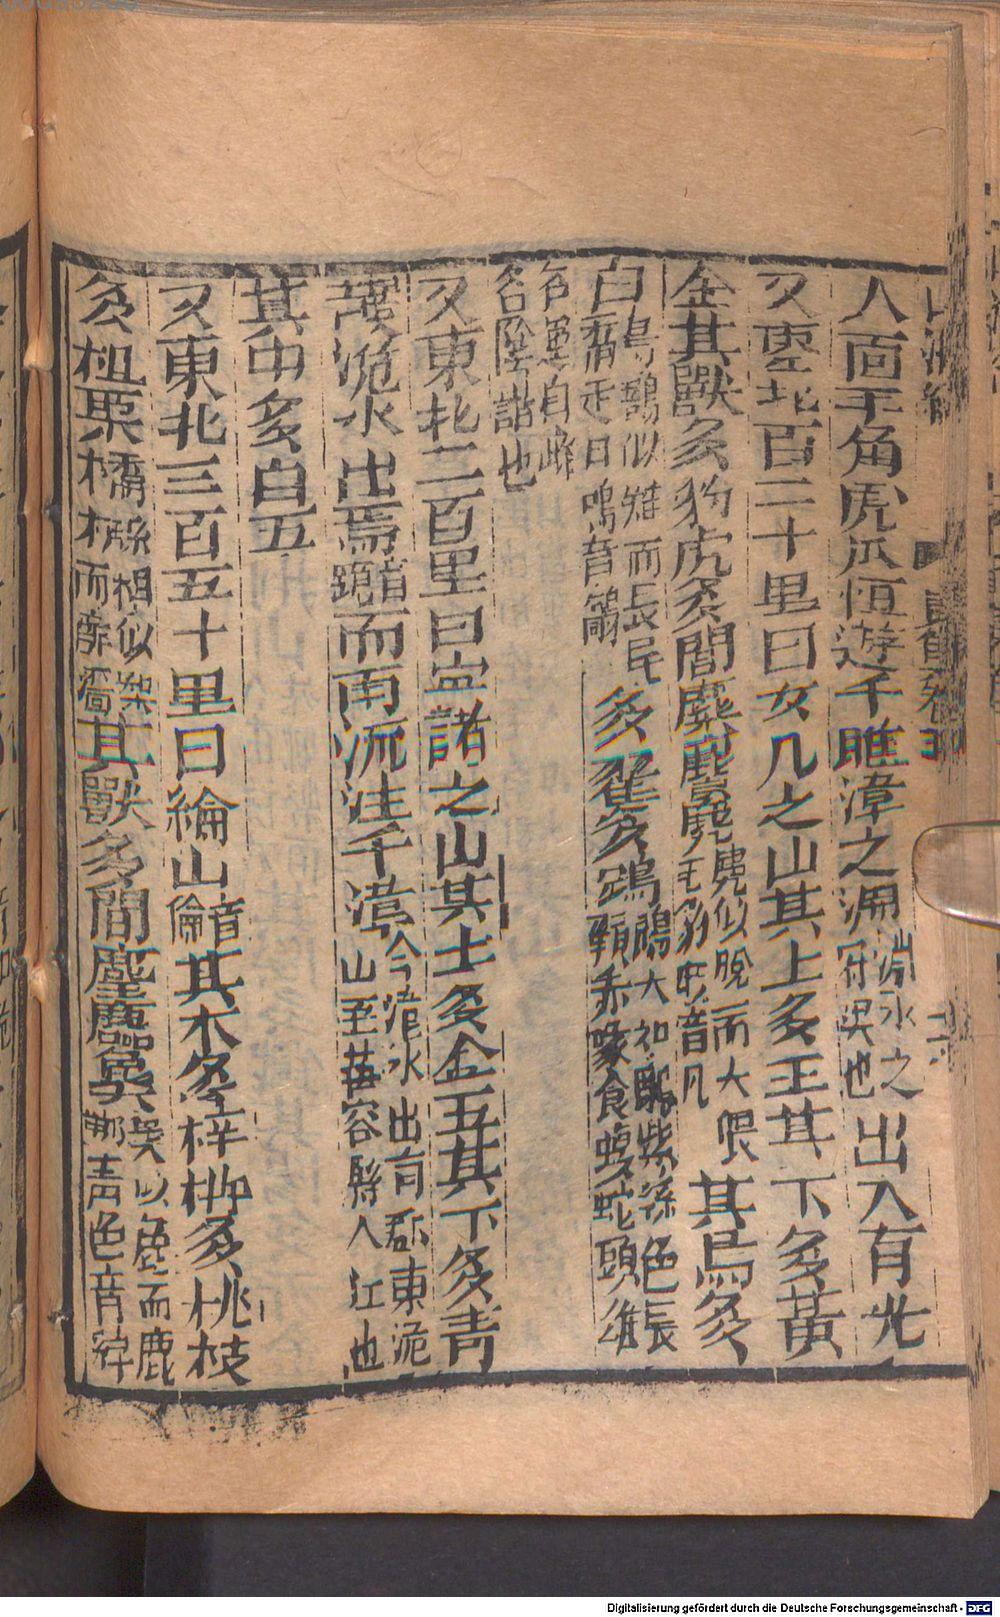 人面羊角虎爪恒遊于雎漳之淵淵水之府奧也出入有光
又東北百二十里曰女几之山其上多玉其下多黃
金其獸多豹虎多閭麋麖麂麂似獐而大偎毛豹脚音几其鳥多
白鷮鷮似雉而長尾走且鳴音鷮多翟多鴆鴆大如鵰紫綠色長頸赤喙食蝮蛇頭雄
名運日雌名陰諧也
又東北二百里曰宜諸之山其上多金玉其下多青
䨼洈水出焉音詭而南流注于漳今洈水出南郡東洈山至華容縣入江也
其中多白玉
又東北三百五十里曰綸山音倫其木多梓枏多桃枝
多柤栗橘櫾柤似梨而酢濇其獸多閭麈麢㚟㚟似兔而鹿脚青色音綽
Digitalisierung gefördert durch die Deutsche Forschungsgemeinschaft - DFG